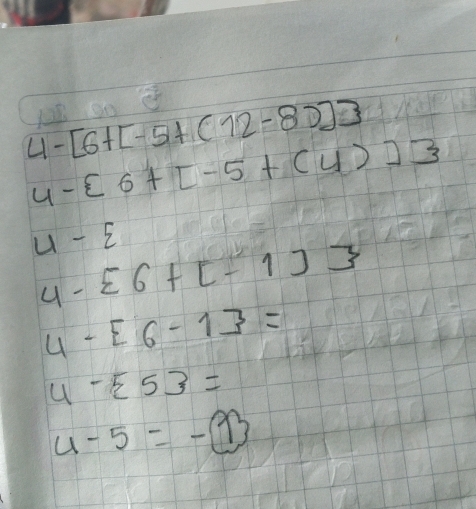 4-[6+[-5+(12-8)]}
4-{6+[-5+(4)]}
4-{
4-{6+[-1]}
4-{6-1}=
4-{5}=
4-5=-1